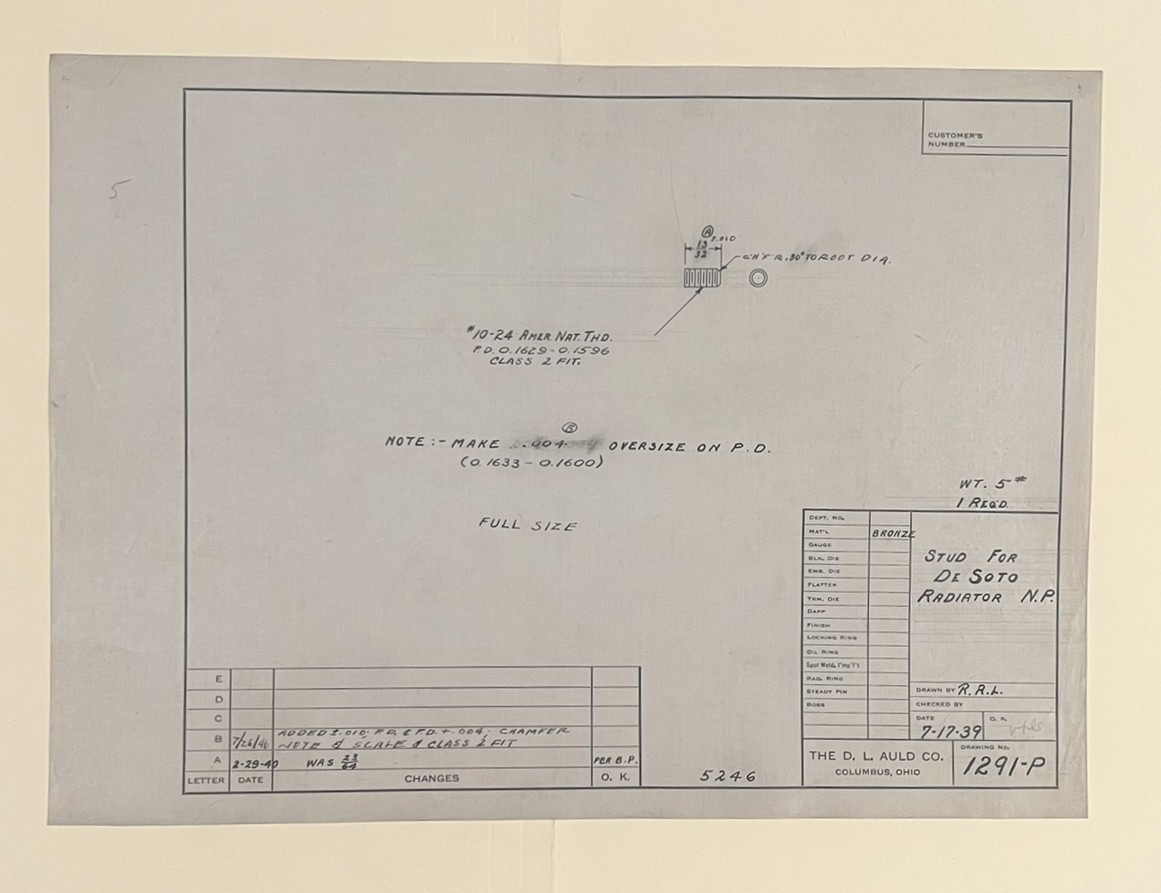 5
CUSTOMER'S
NUMBER
A
13
32
±.010
CH'F'R. 30° TO ROOT DIA.
#10-24 AMER. NAT. THD.
P.D. 0.1629-0.1596
CLASS 2 FIT.
B
NOTE :- MAKE .004 OVERSIZE ON P.D.
(0.1633 - 0.1600)
FULL SIZE
WT. 5#
1 REQ'D.
DEPT. NO.
MAT'L BRONZE
GAUGE
BLK. DIE
EMB. DIE
FLATTER
TRM. DIE
DAPP
FINISH
LOCKING RING
OIL RING
Spot Weld. Imp't
RAD. RING
STEADY PIN
BOSS
STUD FOR
DE SOTO
RADIATOR N.P.
DRAWN BY R.R.L.
CHECKED BY
DATE O. K.
7-17-39
THE D. L. AULD CO.
COLUMBUS, OHIO
DRAWING NO.
1291-P
E
D
C
B 7/26/40 ADDED ±.010, P.D. & P.D. +.004, CHAMFER
NOTE & SCALE & CLASS 2 FIT
A 2-29-40 WAS 23/64 PER B.P.
LETTER DATE CHANGES O. K.
5246